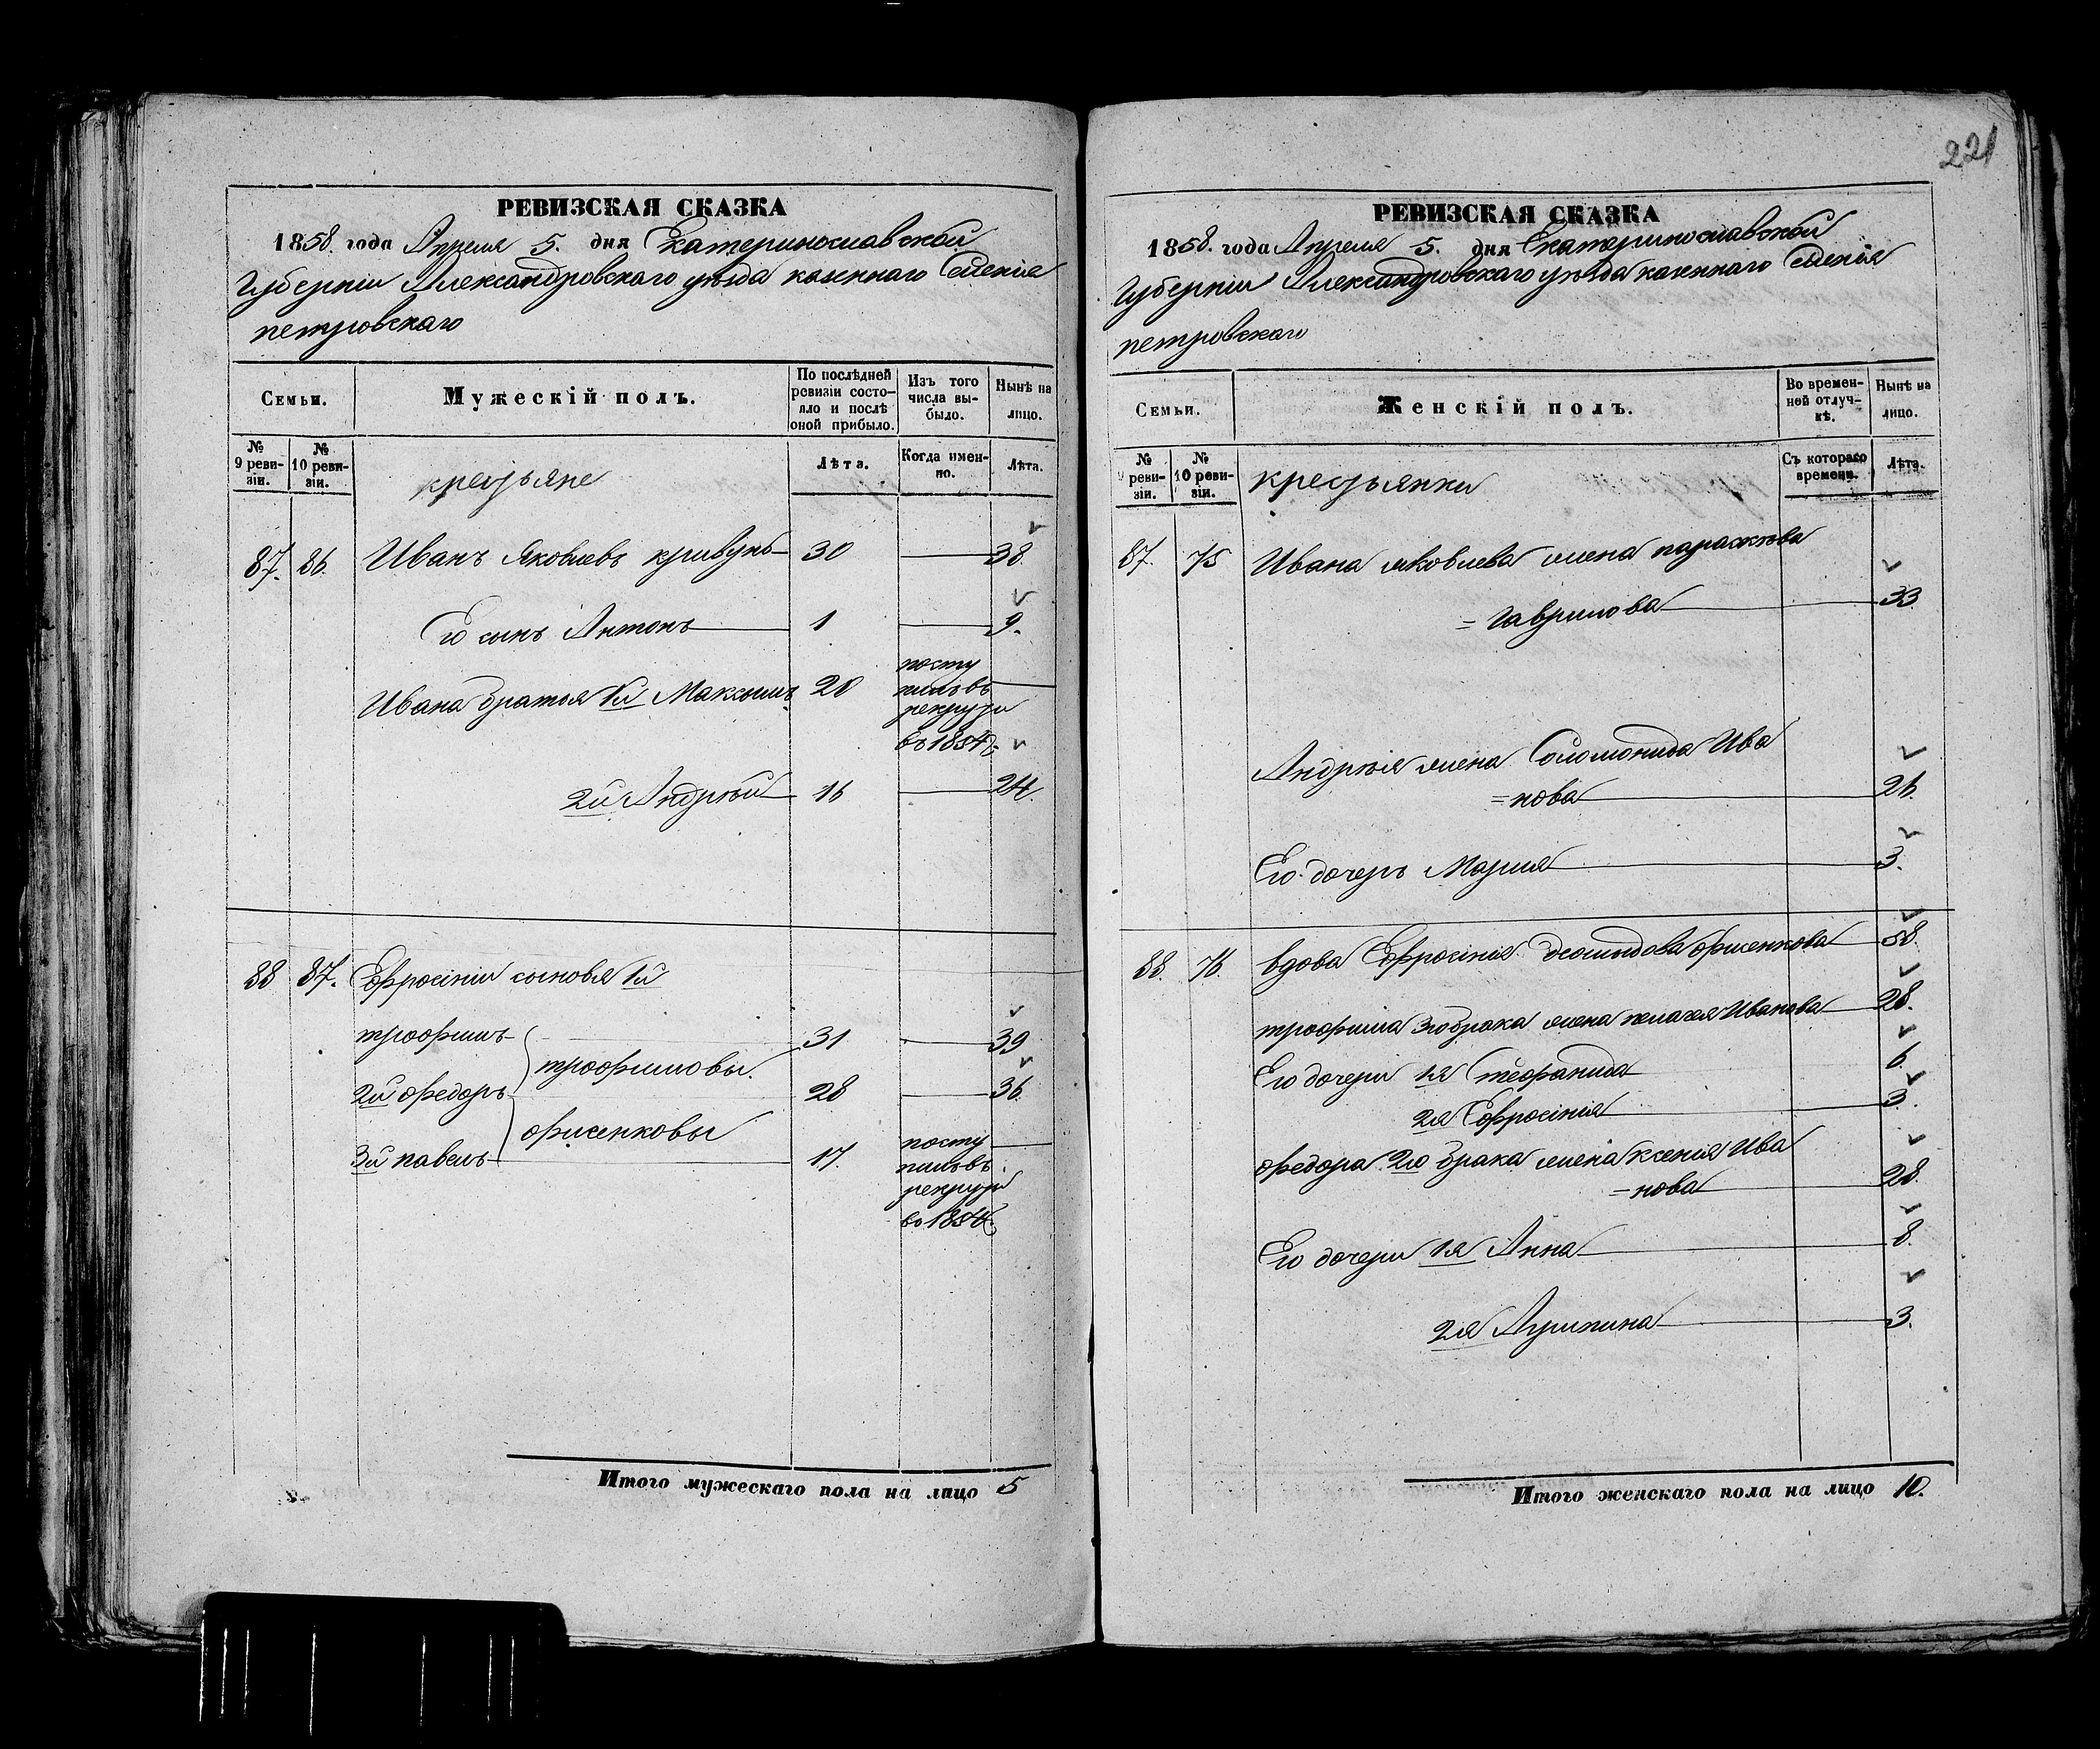 РЕВИЗСКАЯ СКАЗКА
1858. года Апреля 5. дня Екатеринославской
Губерніи Александровскаго уѣзда казеннаго Селенія
петровскаго
Семьи.
Мужескій полъ.
По послѣдней
ревизіи состо-
яло и послѣ
оной прибыло.
Изъ того
числа вы-
было.
Нынѣ на
лицо.
№
9 реви-
зіи.
№
10 реви-
зіи.
крестьяне
Лѣта.
Когда имен-
но.
Лѣта.
87. 86. Иванъ Яковлевъ кривунь 30 38.
Его сынъ Антонъ 1 9.
Ивана братья 1й Максимъ 20 посту
пилъ въ
рекруты
въ 1854г.
2й Андрѣй 16 24.
88 87. Ефросініи сыновья 1й
трофимъ 31 39
трофимовы.
2й федоръ 28 36.
фисенковы
3й павелъ 17. посту
пилъ въ
рекруты
въ 1854г.
Итого мужескаго пола на лицо 5
221
РЕВИЗСКАЯ СКАЗКА
1858. года Апреля 5. дня Екатеринославской
Губерніи Александровскаго уѣзда казеннаго Селенія
петровскаго
Семьи.
Женскій полъ.
Во времен-
ной отлуч-
кѣ.
Нынѣ на
лицо.
№
9 реви-
зіи.
№
10 реви-
зіи.
крестьянки
Съ котораго
времени.
Лѣта.
87. 75 Ивана яковлева жена параскѣва
= гаврилова 33
Андрѣя жена Соломонида Ива
= нова 26.
Его дочерь Мария 3.
88. 76. вдова Ефросінія фисенкова 58.
трофима 3го брака жена пелагея Иванова 28.
Его дочери 1я Стефанида 6.
2я Ефросінія 3.
федора 2го брака жена ксенія Ива
= нова 28.
Его дочери 1я Анна 8.
2я 3.
Итого женскаго пола на лицо 10.